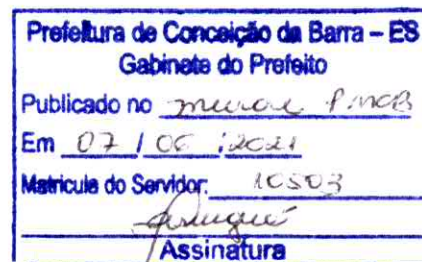 Prefeitura de Conceição da Barra – ES
Gabinete do Prefeito
Publicado no mural PMCB
Em 07 / 06 / 2021
Matricula do Servidor: 10503
Assinatura